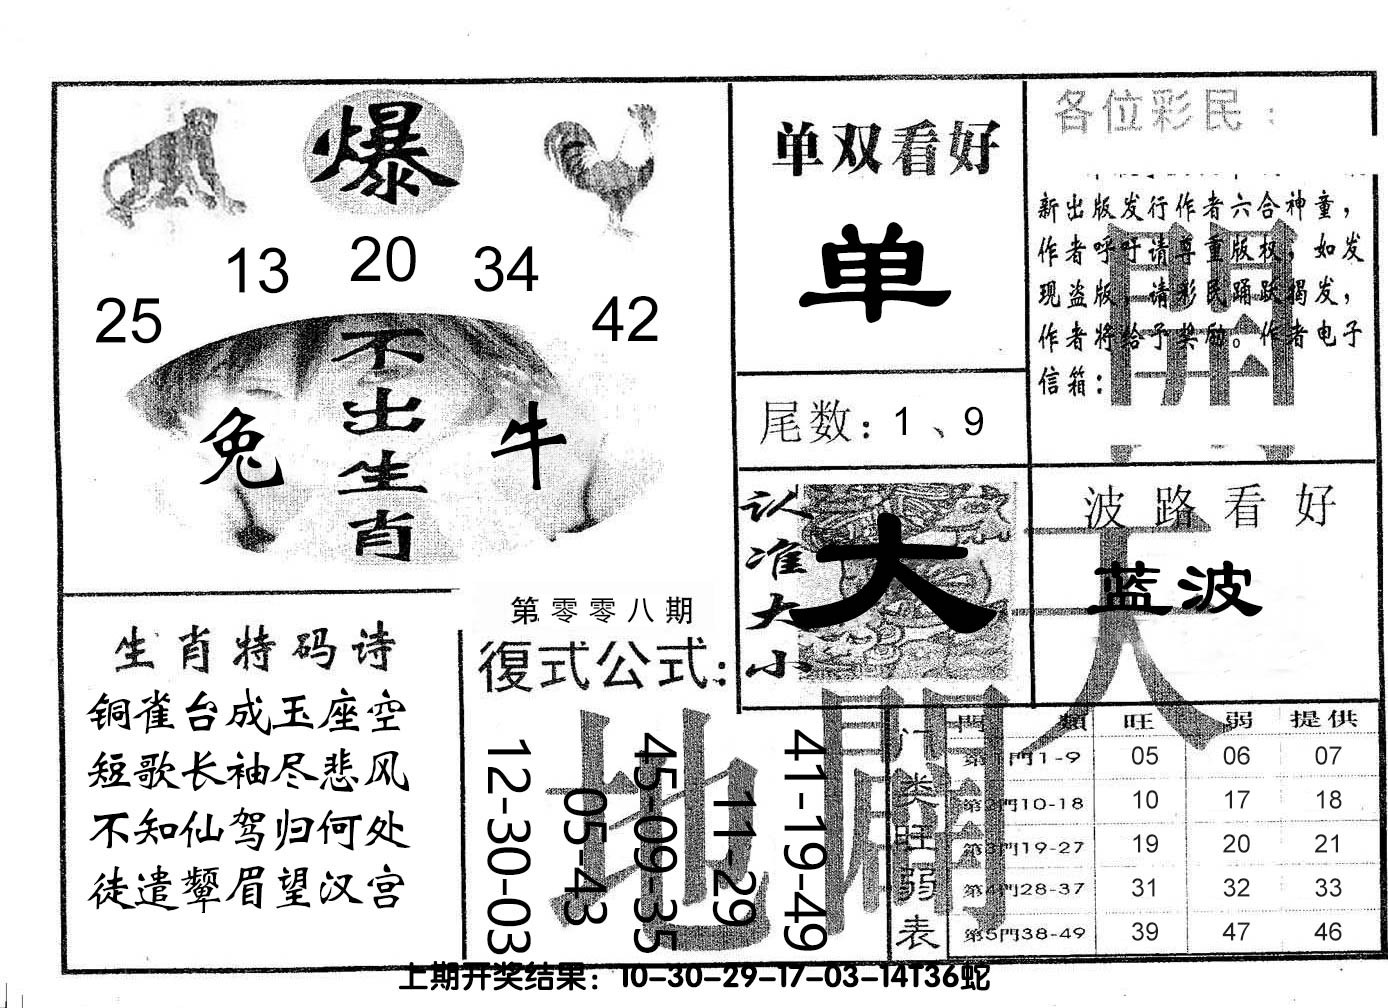 爆
13 20 34
25 42
不出生肖
兔
牛
单双看好
单
尾数：1、9
各位彩民：
新出版发行作者六合神童，
作者呼吁请尊重版权，如发
现盗版，请彩民踊跃揭发，
作者将给予奖励。作者电子
信箱：
開
认准大小
大
波路看好
蓝波
天
生肖特码诗
铜雀台成玉座空
短歌长袖尽悲风
不知仙驾归何处
徒遣颦眉望汉宫
第零零八期
復式公式：
12-30-03
05-43
45-09-35
11-29
41-19-49
地
開
门类旺弱表
門類 旺 弱 提供
第1門1-9 05 06 07
第2門10-18 10 17 18
第3門19-27 19 20 21
第4門28-37 31 32 33
第5門38-49 39 47 46
上期开奖结果：10-30-29-17-03-14T36蛇